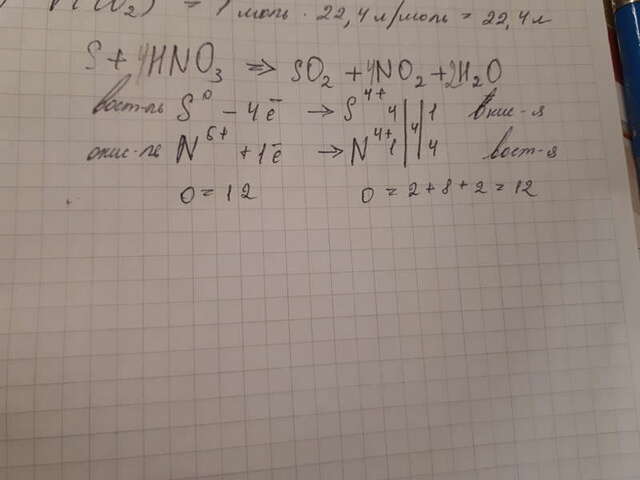 = 1 моль · 22,4 л/моль = 22,4 л
S + 4HNO₃ ⇒ SO₂ + 4NO₂ + 2H₂O
вост-ль S⁰ − 4ē → S⁴⁺ 4 | | 1 окис-я
окис-ль N⁶⁺ + 1ē → N⁴⁺ 1 | 4 | 4 вост-я
O = 12 O = 2 + 8 + 2 = 12